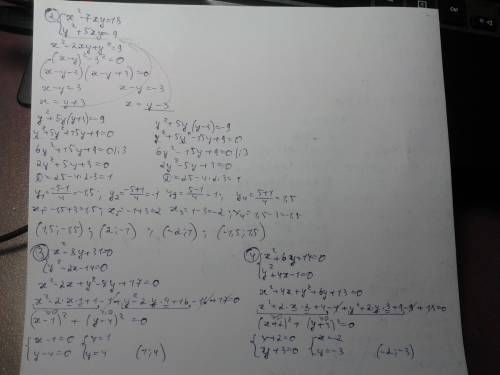 ② { x² - 7xy = 18
y² + 5xy = -9
x² - 2xy + y² = 9
(x-y)² - 3² = 0
(x-y-3)(x-y+3) = 0
x-y = 3 x-y = -3
x = y+3 x = y-3
y² + 5y(y+3) = -9 y² + 5y(y-3) = -9
y² + 5y² + 15y + 9 = 0 y² + 5y² - 15y + 9 = 0
6y² + 15y + 9 = 0 |:3 6y² - 15y + 9 = 0 |:3
2y² + 5y + 3 = 0 2y² - 5y + 3 = 0
D = 25 - 4·2·3 = 1 D = 25 - 4·2·3 = 1
y₁ = (-5-1)/4 = -1,5; y₂ = (-5+1)/4 = -1 y₃ = (5-1)/4 = 1; y₄ = (5+1)/4 = 1,5
x₁ = -1,5+3 = 1,5; x₂ = -1+3 = 2 x₃ = 1-3 = -2; x₄ = 1,5-3 = -1,5
(1,5; -1,5); (2; -1); (-2; 1); (-1,5; 1,5)
③ { x² - 8y + 31 = 0
y² - 2x - 14 = 0
x² - 2x + y² - 8y + 17 = 0
x² - 2·x·1 + 1 - 1 + y² - 2·y·4 + 16 - 16 + 17 = 0
(x-1)² + (y-4)² = 0
{ x-1 = 0 { x = 1
y-4 = 0 y = 4 (1; 4)
④ { x² + 6y + 14 = 0
y² + 4x - 1 = 0
x² + 4x + y² + 6y + 13 = 0
x² + 2·x·2 + 4 - 4 + y² + 2·y·3 + 9 - 9 + 13 = 0
(x+2)² + (y+3)² = 0
{ x+2 = 0 { x = -2
y+3 = 0 y = -3 (-2; -3)